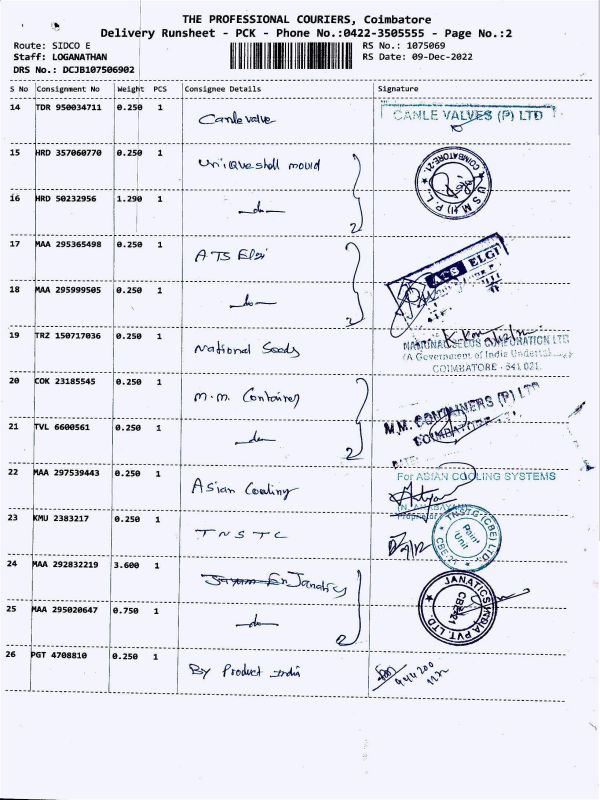 THE PROFESSIONAL COURIERS, Coimbatore
Delivery Runsheet - PCK - Phone No.:0422-3505555 - Page No.:2
Route: SIDCO E
RS No.: 1075069
Staff: LOGANATHAN
RS Date: 09-Dec-2022
DRS No.: DCJB107506902
S No Consignment No Weight PCS Consignee Details Signature
14 TDR 950034711 0.250 1 Canle valve CANLE VALVES (P) LTD
15 HRD 357060770 0.250 1 Unique shell mould COIMBATORE-21.
U S M (I) P. L.
16 HRD 50232956 1.290 1 -do- 2
17 MAA 295365498 0.250 1 ATS Elgi ATS ELGI
18 MAA 295999505 0.250 1 -do- 2
19 TRZ 150717036 0.250 1 National Seeds NATIONAL SEEDS CORPORATION LTD
(A Government of India
COIMBATORE - 641 021.
20 COK 23185545 0.250 1 M.M. Container M.M. CONTAINERS (P) LTD
COIMBATORE
21 TVL 6600561 0.250 1 -do- 2
DATE:
22 MAA 297539443 0.250 1 Asian Cooling For ASIAN COOLING SYSTEMS
Proprietor
23 KMU 2383217 0.250 1 TNSTC TNSTC (CBE) LTD.
Unit
CBE-21
24 MAA 292832219 3.600 1 Janatics JANATICS INDIA PVT. LTD.
CBE-21
25 MAA 295020647 0.750 1 -do- 2
26 PGT 4708810 0.250 1 By Product India